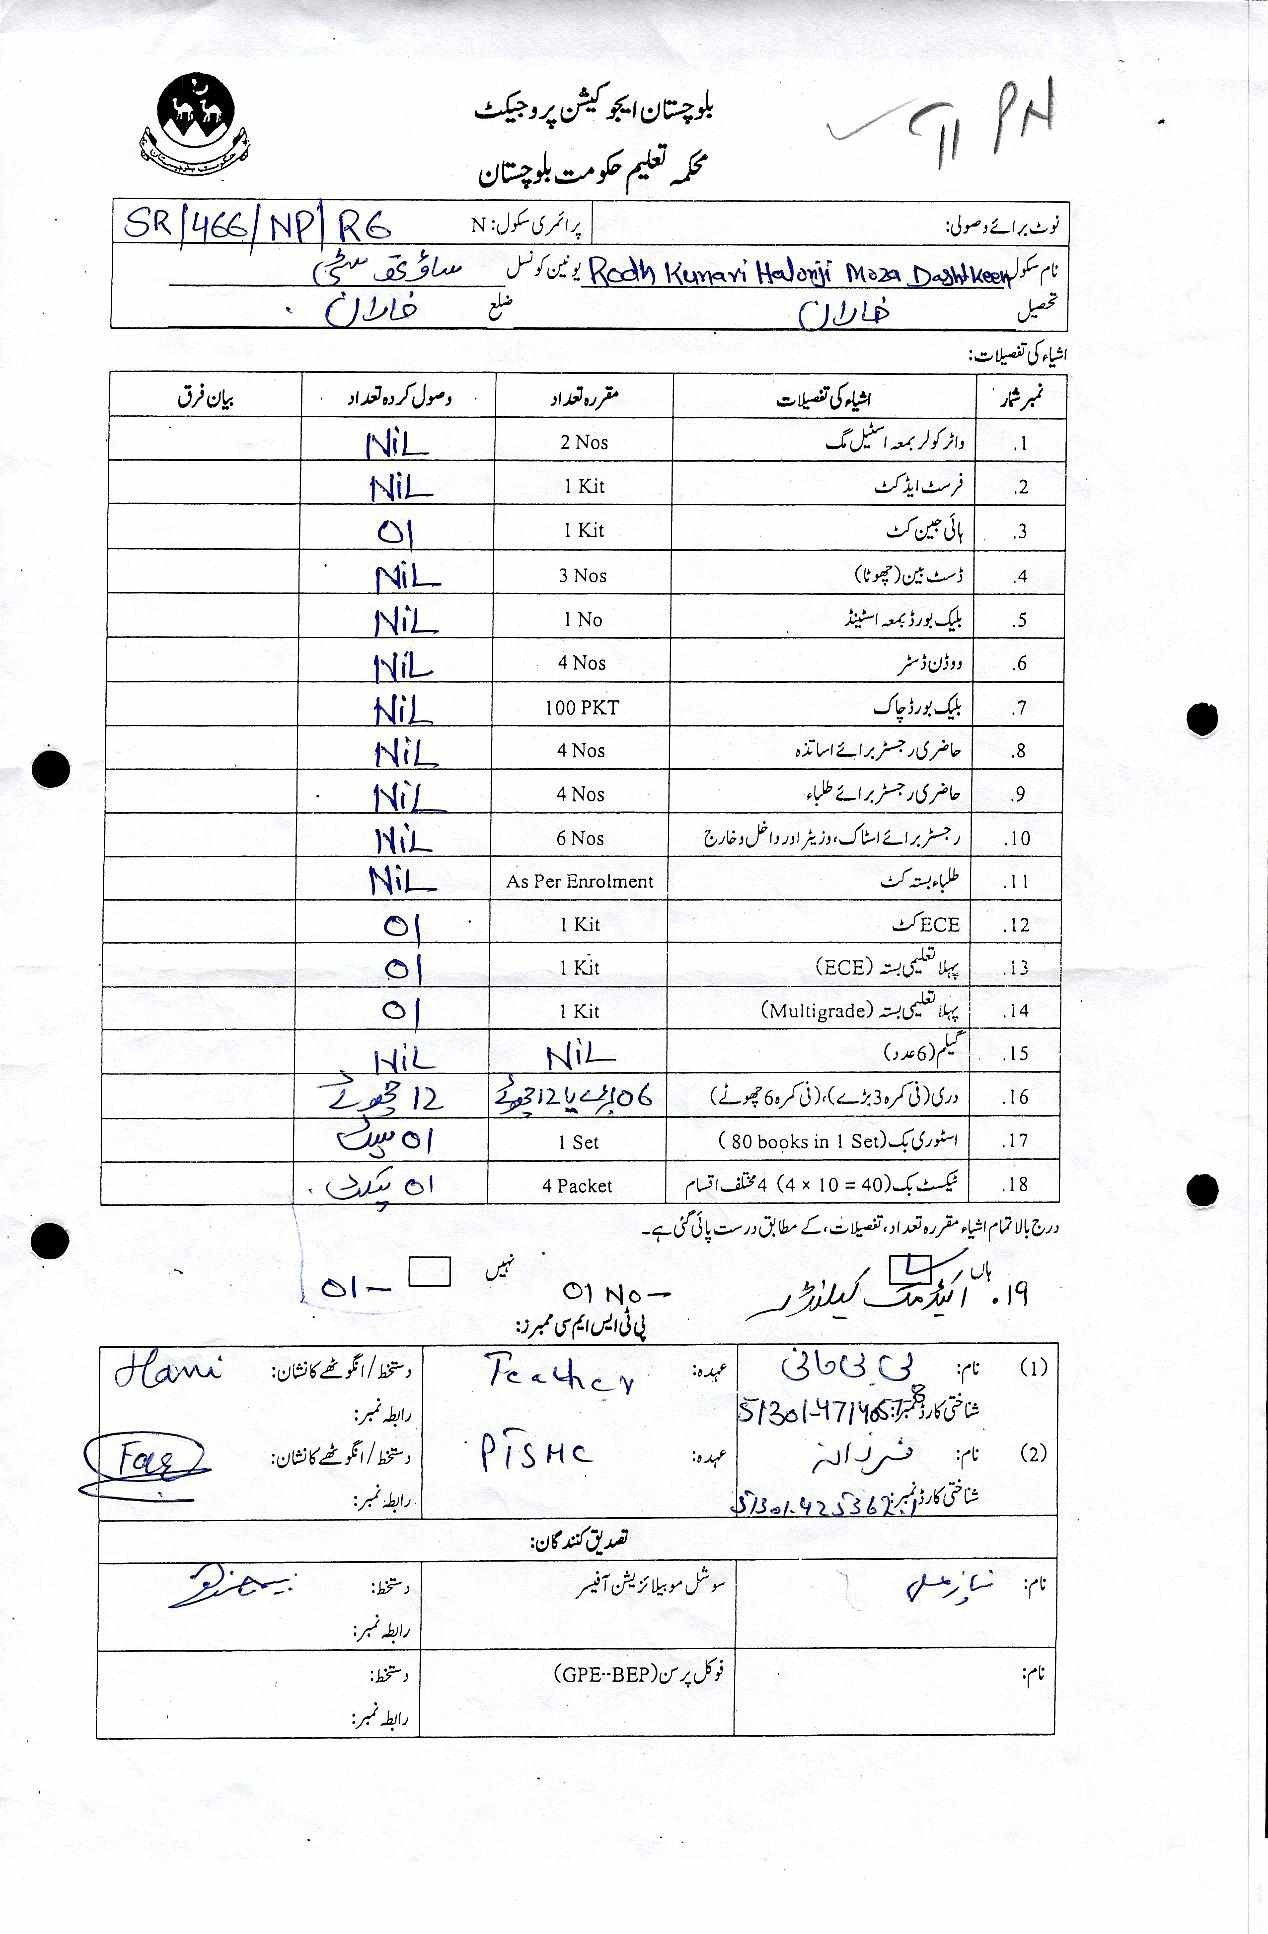 بلوچستان ایجوکیشن پروجیکٹ
محکمہ تعلیم حکومت بلوچستان
PN
حکومت بلوچستان
نوٹ برائے وصولی: پرائمری سکول: N SR/466/NP/RG
نام سکول Rodh Kumari Halonji Moza Dashtkeen یونین کونسل
تحصیل خاران ضلع خاران
اشیاء کی تفصیلات:
نمبر شمار اشیاء کی تفصیلات مقررہ تعداد وصول کردہ تعداد بیان فرق
1. واٹر کولر بمعہ اسٹیل مگ 2 Nos NiL
2. فرسٹ ایڈ کٹ 1 Kit NiL
3. ہائی جین کٹ 1 Kit 01
4. ڈسٹ بین (چھوٹا) 3 Nos NiL
5. بلیک بورڈ بمعہ اسٹینڈ 1 No NiL
6. ووڈن ڈسٹر 4 Nos NiL
7. بلیک بورڈ چاک 100 PKT NiL
8. حاضری رجسٹر برائے اساتذہ 4 Nos NiL
9. حاضری رجسٹر برائے طلباء 4 Nos NiL
10. رجسٹر برائے اسٹاک، وزیٹر اور داخل و خارج 6 Nos NiL
11. طلباء بستہ کٹ As Per Enrolment NiL
12. ECE کٹ 1 Kit 01
13. پہلا تعلیمی بستہ (ECE) 1 Kit 01
14. پہلا تعلیمی بستہ (Multigrade) 1 Kit 01
15. گیلم (6 عدد) NiL NiL
16. دری (فی کمرہ 3 بڑے)، (فی کمرہ 6 چھوٹے) 06 بڑے یا 12 چھوٹے 12 چھوٹے
17. اسٹوری بک (80 books in 1 Set) 1 Set 01 سیٹ
18. ٹیکسٹ بک (4 × 10 = 40) 4 مختلف اقسام 4 Packet 01 پیکٹ
درج بالا تمام اشیاء مقررہ تعداد، تفصیلات، کے مطابق درست پائی گئی ہے۔
ہاں نہیں
19. اکیڈمک کیلنڈر 01 No - 01 -
پی ٹی ایس ایم سی ممبرز:
(1) نام: بی بی ہانی عہدہ: Teacher دستخط/انگوٹھے کا نشان: Hani
شناختی کارڈ نمبر: رابطہ نمبر:
(2) نام: فرزانہ عہدہ: PTSMC دستخط/انگوٹھے کا نشان: Fag
شناختی کارڈ نمبر: رابطہ نمبر:
تصدیق کنندگان:
نام: سوشل موبیلائزیشن آفیسر دستخط:
رابطہ نمبر:
نام: فوکل پرسن (GPE--BEP) دستخط:
رابطہ نمبر: